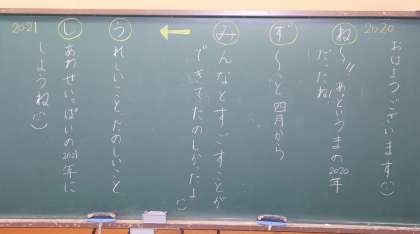 2020
おはようございます(:)
ね〜〃あというまの2020年
だったね!
ず〜っと四月から
みんなとすごすことが
できてたのしかったよ(:
←
うれしいことたのしいこと
しあわせいっぱいの2021年に
しようね(:)
2021